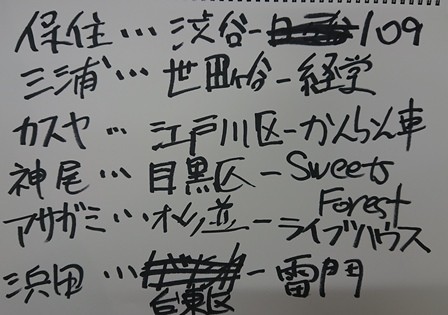 保住…渋谷-109
三浦…世田ヶ谷-経堂
カスヤ…江戸川区-かんらん車
神尾…目黒区-Sweets Forest
アサガミ…杉並-ライブハウス
浜田…台東区-雷門